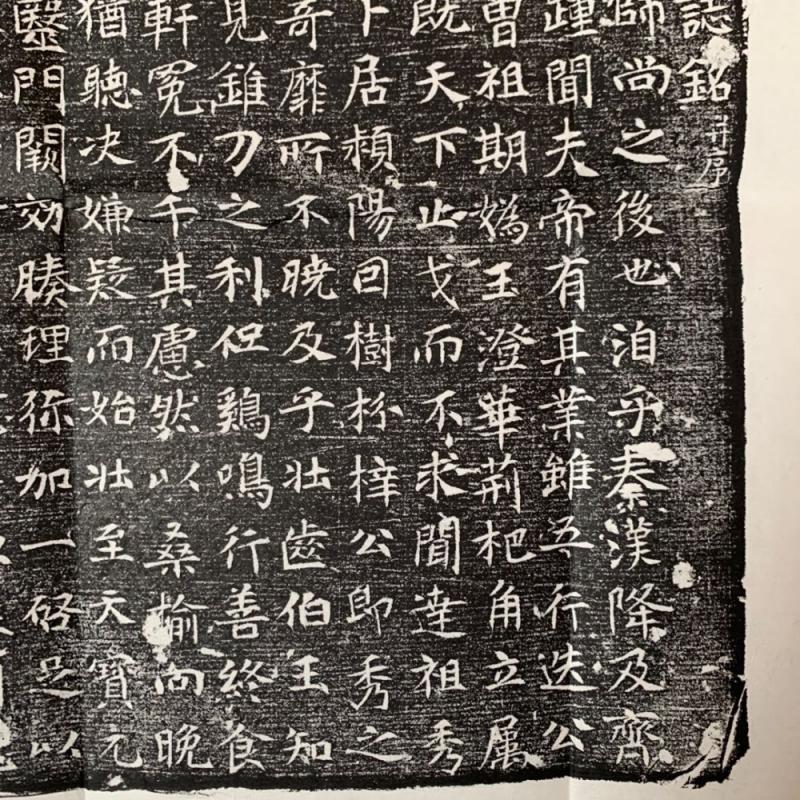 誌銘并序
師尚之後也洎乎秦漢降及齊
踵聞夫帝有其業雖五行迭公
曹祖期嬀王澄華荊杞角立属
既天下止戈而不求聞達祖秀
卜居頻陽曰樹枌梓公即秀之
奇靡所不曉及乎壯齒伯王知
見錐刀之利但鷄鳴行善終食
軒冕不干其慮然以桑榆向晚
猶聽决嫌疑而始壯至天寶元
毉門闕効腠理弥加一啓足以